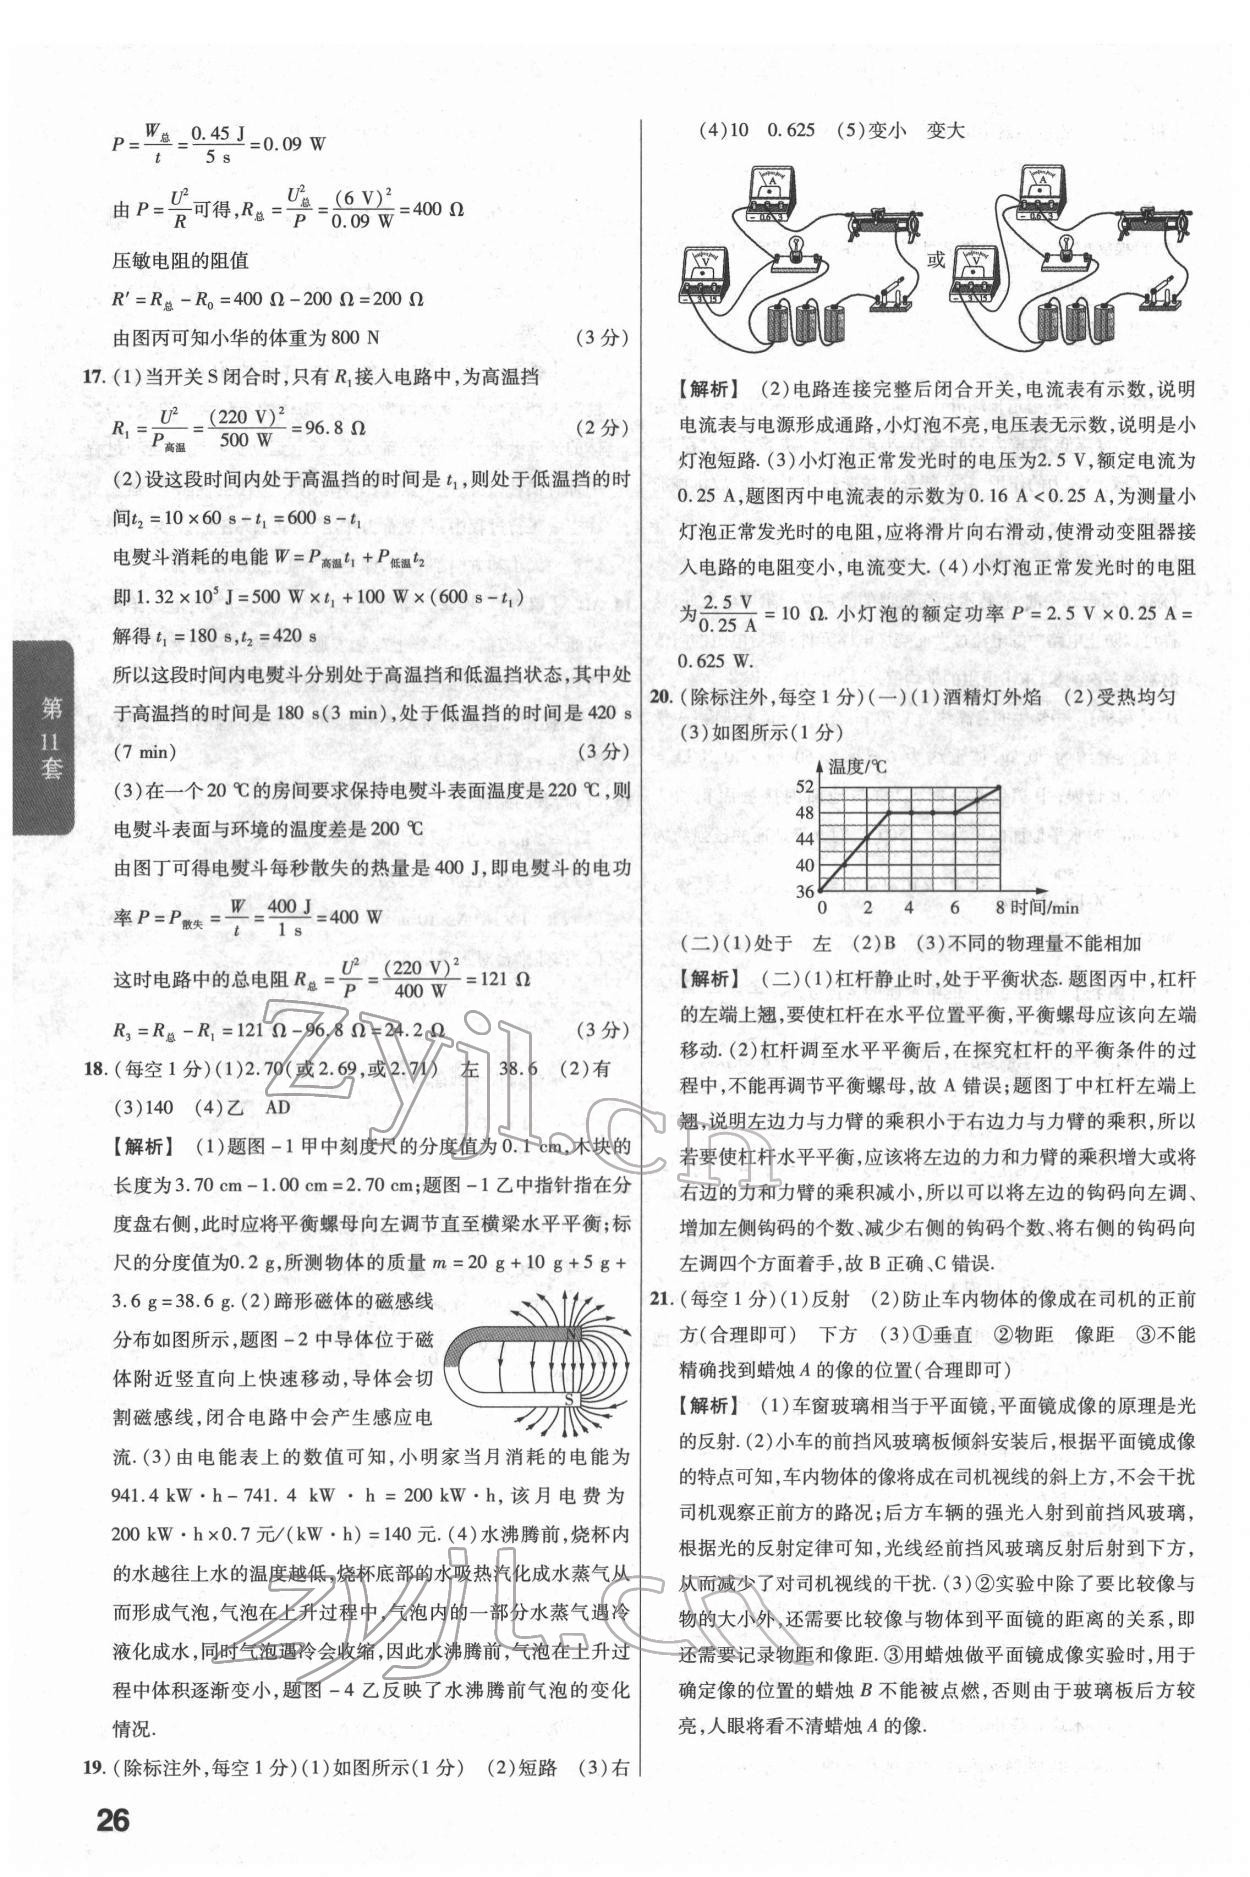 P=W总/t=0.45 J/5 s=0.09 W
由 P=U²/R可得,R总=U²总/P=(6 V)²/0.09 W=400 Ω
压敏电阻的阻值
R′=R总-R₀=400 Ω-200 Ω=200 Ω
由图丙可知小华的体重为800 N (3分)
17. (1)当开关S闭合时,只有R₁接入电路中,为高温挡
R₁=U²/P高温=(220 V)²/500 W=96.8 Ω (2分)
(2)设这段时间内处于高温挡的时间是t₁,则处于低温挡的时
间t₂=10×60 s-t₁=600 s-t₁
电熨斗消耗的电能W=P高温t₁+P低温t₂
即1.32×10⁵ J=500 W×t₁+100 W×(600 s-t₁)
解得t₁=180 s,t₂=420 s
所以这段时间内电熨斗分别处于高温挡和低温挡状态,其中处
于高温挡的时间是180 s(3 min),处于低温挡的时间是420 s
(7 min) (3分)
(3)在一个20 ℃的房间要求保持电熨斗表面温度是220 ℃,则
电熨斗表面与环境的温度差是200 ℃
由图丁可得电熨斗每秒散失的热量是400 J,即电熨斗的电功
率P=P散失=W/t=400 J/1 s=400 W
这时电路中的总电阻R总=U²/P=(220 V)²/400 W=121 Ω
R₃=R总-R₁=121 Ω-96.8 Ω=24.2 Ω (3分)
18. (每空1分)(1)2.70(或2.69,或2.71) 左 38.6 (2)有
(3)140 (4)乙 AD
【解析】 (1)题图-1甲中刻度尺的分度值为0.1 cm,木块的
长度为3.70 cm-1.00 cm=2.70 cm;题图-1乙中指针指在分
度盘右侧,此时应将平衡螺母向左调节直至横梁水平平衡;标
尺的分度值为0.2 g,所测物体的质量m=20 g+10 g+5 g+
3.6 g=38.6 g.(2)蹄形磁体的磁感线
分布如图所示,题图-2中导体位于磁
体附近竖直向上快速移动,导体会切
割磁感线,闭合电路中会产生感应电
N
S
流.(3)由电能表上的数值可知,小明家当月消耗的电能为
941.4 kW·h-741.4 kW·h=200 kW·h,该月电费为
200 kW·h×0.7元/(kW·h)=140元.(4)水沸腾前,烧杯内
的水越往上水的温度越低,烧杯底部的水吸热汽化成水蒸气从
而形成气泡,气泡在上升过程中,气泡内的一部分水蒸气遇冷
液化成水,同时气泡遇冷会收缩,因此水沸腾前,气泡在上升过
程中体积逐渐变小,题图-4乙反映了水沸腾前气泡的变化
情况.
19. (除标注外,每空1分)(1)如图所示(1分) (2)短路 (3)右
26
第11套
(4)10 0.625 (5)变小 变大
A
- 0.6 3
V
- 3 15
或
A
- 0.6 3
V
- 3 15
【解析】 (2)电路连接完整后闭合开关,电流表有示数,说明
电流表与电源形成通路,小灯泡不亮,电压表无示数,说明是小
灯泡短路.(3)小灯泡正常发光时的电压为2.5 V,额定电流为
0.25 A,题图丙中电流表的示数为0.16 A<0.25 A,为测量小
灯泡正常发光时的电阻,应将滑片向右滑动,使滑动变阻器接
入电路的电阻变小,电流变大.(4)小灯泡正常发光时的电阻
为2.5 V/0.25 A=10 Ω.小灯泡的额定功率P=2.5 V×0.25 A=
0.625 W.
20. (除标注外,每空1分)(一)(1)酒精灯外焰 (2)受热均匀
(3)如图所示(1分)
温度/℃
52
48
44
40
36
0 2 4 6 8 时间/min
(二)(1)处于 左 (2)B (3)不同的物理量不能相加
【解析】 (二)(1)杠杆静止时,处于平衡状态.题图丙中,杠杆
的左端上翘,要使杠杆在水平位置平衡,平衡螺母应该向左端
移动.(2)杠杆调至水平平衡后,在探究杠杆的平衡条件的过
程中,不能再调节平衡螺母,故A错误;题图丁中杠杆左端上
翘,说明左边力与力臂的乘积小于右边力与力臂的乘积,所以
若要使杠杆水平平衡,应该将左边的力和力臂的乘积增大或将
右边的力和力臂的乘积减小,所以可以将左边的钩码向左调、
增加左侧钩码的个数、减少右侧的钩码个数、将右侧的钩码向
左调四个方面着手,故B正确、C错误.
21. (每空1分)(1)反射 (2)防止车内物体的像成在司机的正前
方(合理即可) 下方 (3)①垂直 ②物距 像距 ③不能
精确找到蜡烛A的像的位置(合理即可)
【解析】 (1)车窗玻璃相当于平面镜,平面镜成像的原理是光
的反射.(2)小车的前挡风玻璃板倾斜安装后,根据平面镜成像
的特点可知,车内物体的像将成在司机视线的斜上方,不会干扰
司机观察正前方的路况;后方车辆的强光入射到前挡风玻璃,
根据光的反射定律可知,光线经前挡风玻璃反射后射到下方,
从而减少了对司机视线的干扰.(3)②实验中除了要比较像与
物的大小外,还需要比较像与物体到平面镜的距离的关系,即
还需要记录物距和像距.③用蜡烛做平面镜成像实验时,用于
确定像的位置的蜡烛B不能被点燃,否则由于玻璃板后方较
亮,人眼将看不清蜡烛A的像.
zyjl.cn
zyjl.cn